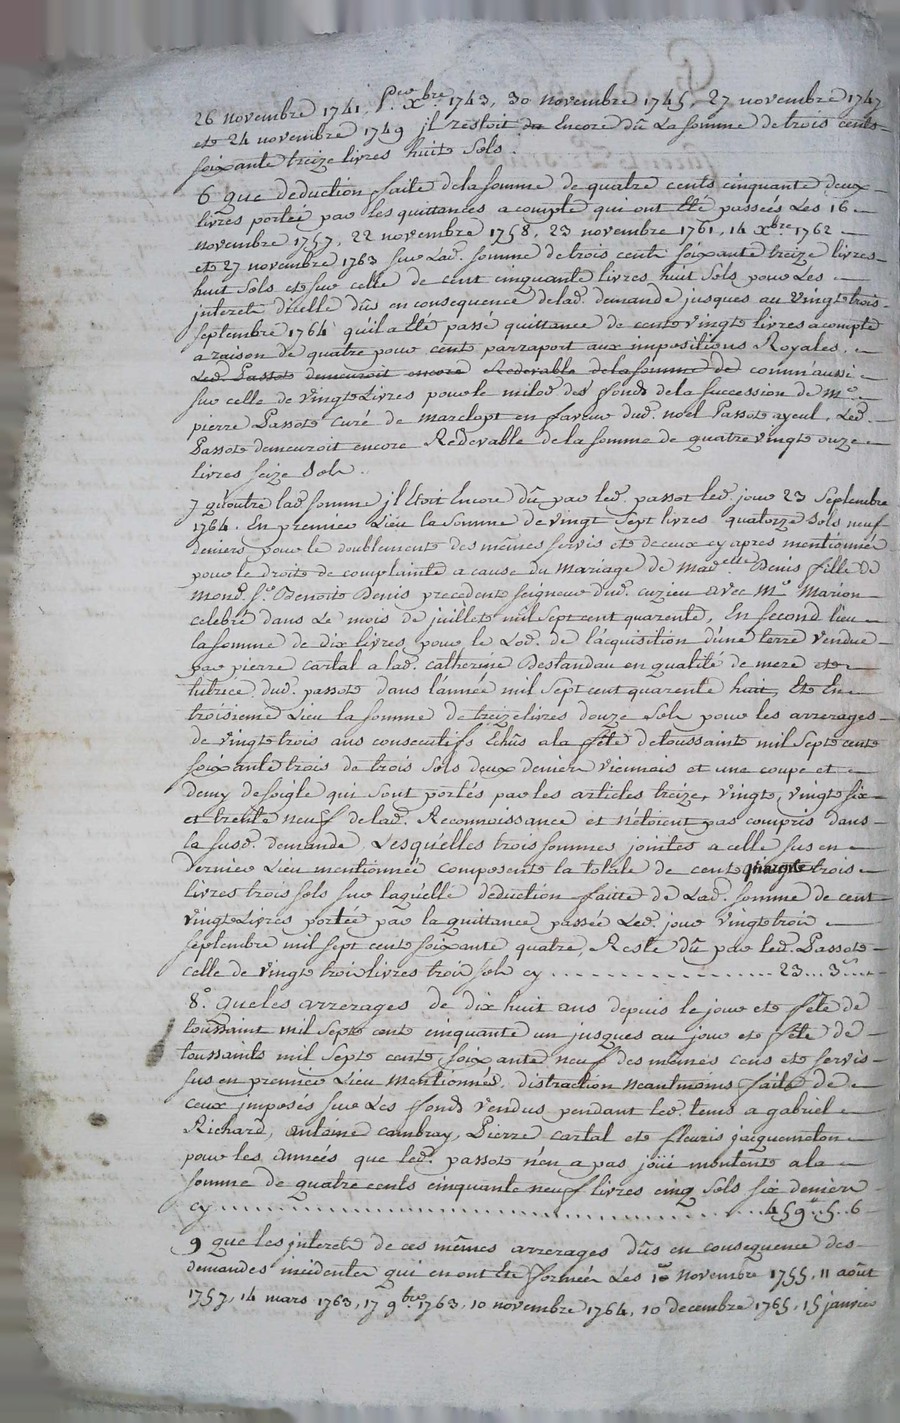 26 novembre 1741, p.er Xbre 1743, 30 novembre 1745, 27 novembre 1747
et 24 novembre 1749 jl restoit du Encore dû La somme de trois cents
soixante treize livres huit sols.
6 que deduction faite de la somme de quatre cents cinquante deux
livres porteé par les quittances a compte qui ont Eté passeés Les 16
novembre 1757, 22 novembre 1758, 23 novembre 1761, 14 Xbre 1762
et 27 novembre 1763 sur Lad. somme de trois cents soixante treize livres
huit sols et sur celle de cent cinquante livres huit sols pour Les
jnterets d'icelle dûs en consequence de lad. demande jusques au vingt trois
septembre 1764 qu'il a Eté passé quittance de cent vingt livres a compte
a raison de quatre pour cent par raport aux impositions Royales,
Led. Passot demeuroit encore Redevable de la somme de comm'aussi
sur celle de vingt Livres pour le milod des fonds de la succession de M.e
pierre Passot Curé de marclopt en faveur dud. noël Passot ayeul, Led.
Passot demeuroit encore Redevable de la somme de quatre vingt onze
livres seize sols.
7 qu'outre lad. somme jl Etoit Encore dû par led. passot led. jour 23 Septembre
1764. En premier Lieu la somme de vingt sept livres quatorze sols neuf
deniers pour le doublement des mêmes servis et de ceux cy apres mentionnés
pour le droit de complainte a cause du mariage de mad.elle Denis fille de
mond. s.r Benoit Denis precedent seigneur dud. cuzieu avec M.e Marion
celebré dans Le mois de juillet mil sept cent quarente, En second lieu
la somme de dix livres pour le Lod. de l'acquisition d'une terre vendue
par pierre cartal a lad. catherine Destandau en qualité de mere et
tutrice dud. passot dans l'année mil sept cent quarente huit, Et En
troisieme Lieu la somme de treize livres douze sols pour les arrerages
de vingt trois ans consecutifs Echûs a la fête de toussaint mil sept cent
soixante trois de trois sols deux deniers viennois et une coupe et
demy de seigle qui sont portés par les articles treize, vingt, vingt six
et trente neuf de lad. Reconnoissance et n'etoient pas compris dans
la susd. demande, Lesquelles trois sommes jointes a celle sus en
dernier Lieu mentionnée composent la totale de cent quarente trois
livres trois sols sur laquelle deduction faite de Lad. somme de cent
vingt Livres portée par la quittance passée Led. jour vingt trois
septembre mil sept cent soixante quatre, Reste dû par led. Passot
celle de vingt trois livres trois sols cy ............... 23...3...
8.° que les arrerages de dix huit ans depuis le jour et fête de
toussaint mil sept cent cinquante un jusques au jour et fête de
toussaints mil sept cent soixante neuf des mêmes cens et servis
sus en premier Lieu mentionnés, distraction neantmoins faite de
ceux imposés sur Les fonds vendus pendant led. tems a gabriel
Richard, antoine cambray, Pierre cartal et fleuris jacquemeton
pour les Années que led. passot n'en a pas jöüi montent a la
somme de quatre cents cinquante neuf livres cinq sols six deniers
cy ........................ 459..5..6
9 que les jnterets de ces mêmes arrerages dûs en consequence des
demandes incidentes qui en ont Eté formées Les 10 novembre 1755, 11 août
1757, 14 mars 1763, 17 9bre 1763, 10 novembre 1764, 10 decembre 1765, 15 janvier